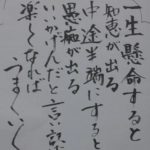 一生懸命すると
知恵が出る
中途半端にすると
愚痴が出る
いいかげんだと言い訳
楽しくなれば
うまくいく